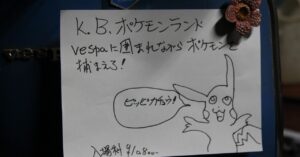 K.B.ポケモンランド
vespaに囲まれながらポケモンを
捕まえろ!
ピッピカチュウ!
入場料